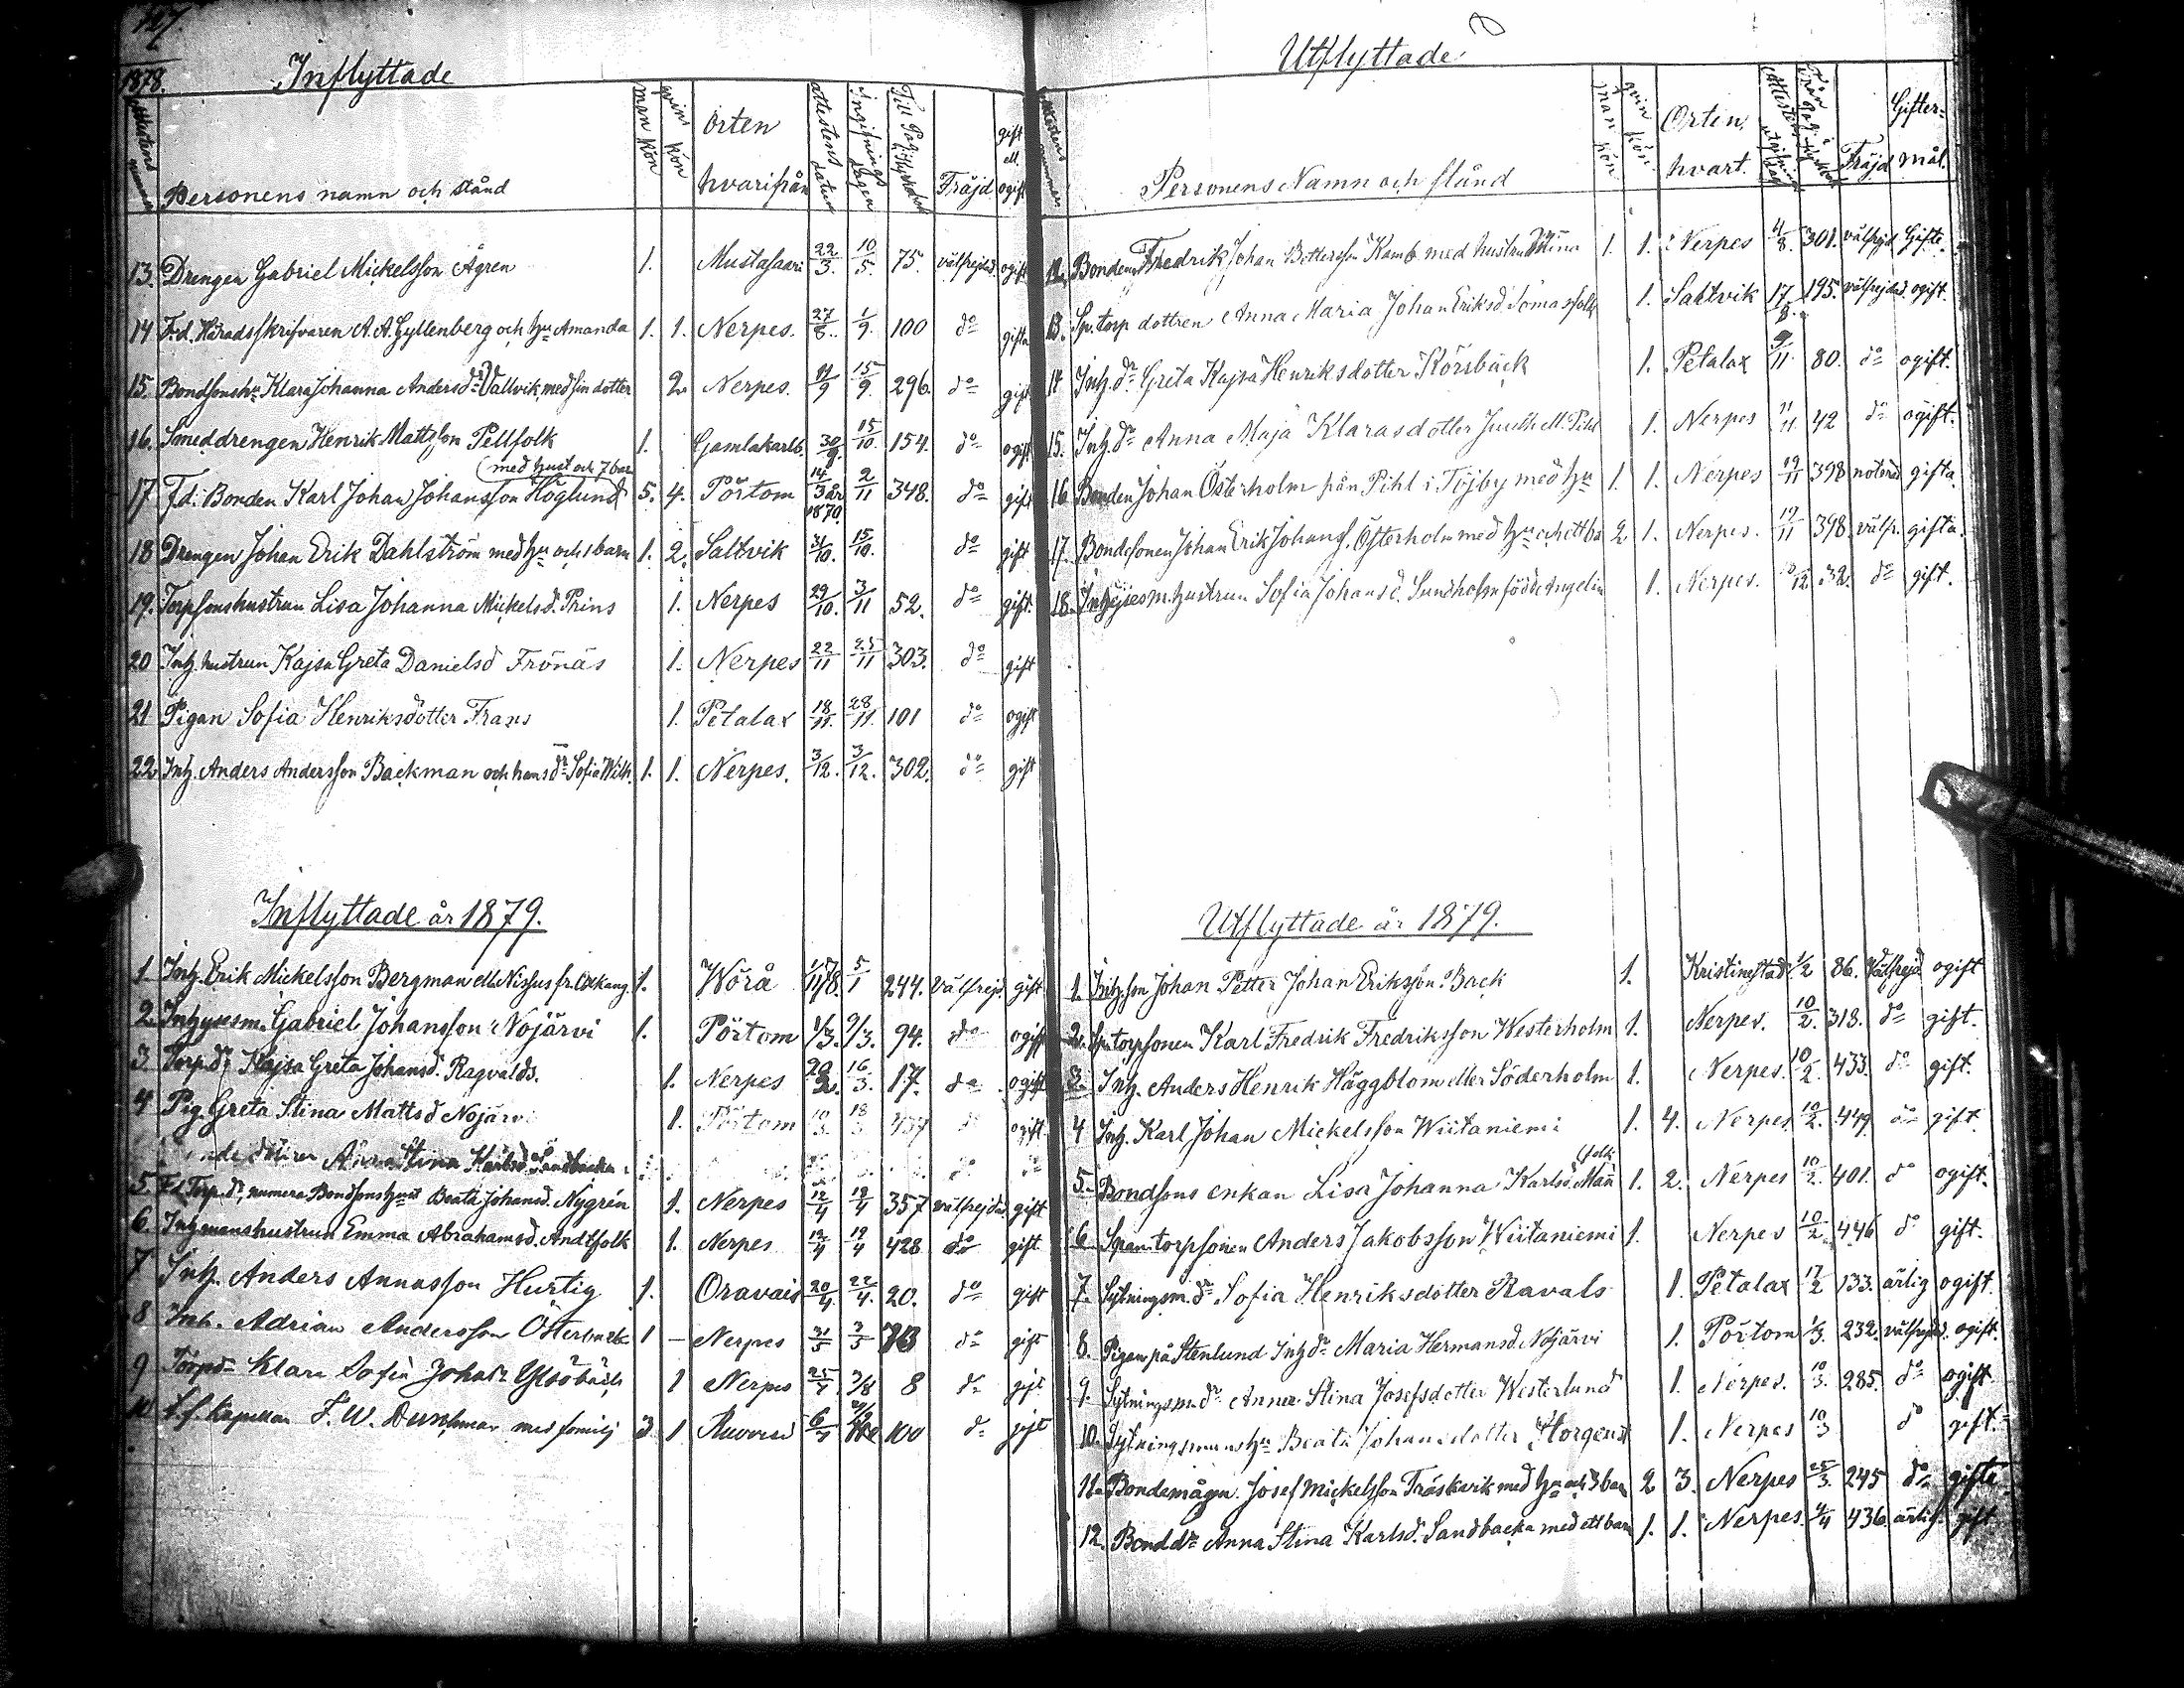 127.
1878.
Inflyttade
Attestens nummer
Personens namn och stånd
man kön
qvin kön
Orten hvarifrån
attestens datum
Ingifnings dagen
Till Pag. i Kyrkobok
Fräjd
gift ell. ogift
13. Drengen Gabriel Mickelsson Ågren 1. Mustasaari 22/3. 10/5. 75. välfrejdad. ogift
14 F.d. Häradsskrifvaren A. A. Gyllenberg och hu Amanda 1. 1. Nerpes. 27/8. 1/9. 100 do gifta
15. Bondsonshu Klara Johanna Andersdr Vallvik, med sin dotter 2. Nerpes. 11/9 15/9. 296. do gift
16. Smeddrengen Henrik Mattsson Pellfolk 1. Gamlakarlb. 30/9. 15/10. 154. do ogift
(med hust och 7 bar
17 F.d. Bonden Karl Johan Johansson Höglund 5. 4. Pörtom 14/3 år 1870. 2/11 348. do gift
18 Drengen Johan Erik Dahlström med hu och 1 barn 1. 2. Saltvik 31/10. 15/10. do gift
19. Torpsonshustrun Lisa Johanna Mickelsd. Prins 1. Nerpes 29/10. 3/11 52. do gift
20 Inh. hustrun Kajsa Greta Danielsd Frönäs 1. Nerpes 22/11 25/11 303. do gift
21 Pigan Sofia Henriksdotter Frans 1. Petalax 18/11. 28/11. 101 do ogift
22. Inh. Anders Andersson Backman och hans dr Sofia Wilh. 1. 1. Nerpes. 3/12. 3/12. 302. do gift
Inflyttade år 1879.
1. Inh. Erik Mickelsson Bergman ell. Nissus fr. Oxkang. 1. Wörå 5/1 244. Välfrejd. gift
2. Inhysesm. Gabriel Johansson Nojärvi 1. Pörtom 1/3. 9/3. 94. do ogift
3 Torp.dr Kajsa Greta Johansd. Ragvalds. 1. Nerpes 20/2. 16/3. 17. do ogift
4 Pig. Greta Stina Mattsd Nojärvi 1. Pörtom 10/3. 18/3 437 do ogift
Anna Stina Karlsd. Sandbacka
5. F.d. Torp.dr numera Bondsonshust Beata Johansd. Nygrén 1. Nerpes 12/4 19/4 357 välfrejdad. gift
6. Inhmanshustrun Emma Abrahamsd. Andtfolk 1. Nerpes 12/4 19/4 428 do gift
7 Inh. Anders Annasson Hurtig 1. Oravais 20/4. 22/4. 20. do gift
8 Inh. Adrian Andersson Österback 1 – Nerpes 31/3 3/5 do gift
9 Torpdr Klara Sofia Johansdr 1 Nerpes 25/4 3/8 8 do gift
10 t.f. Kapellan F. W. med familj 3 1 100 do gift
Utflyttade
Attestens nummer
Personens Namn och stånd
man kön
qvin kön
Orten. hvart.
Attestens utgifnings dag
Från Pag. i Kyrkob.
Fräjd
Gifter-mål.
12. Bonden Fredrik Johan Bettersson Kamb med hustru Mina 1. 1. Nerpes 4/8. 301. välfrejd Gifte.
13. Sp. torp dottren Anna Maria Johan Eriksd Tomasfolk 1. Saltvik 17/8. 195. välfrejdad. ogift.
14 Inh. dr Greta Kajsa Henriksdotter Körsbäck 1. Petalax 9/11. 80. do ogift.
15. Inh. dr Anna Maja Klarasdotter 1. Nerpes 11/11. 42 do ogift.
16. Bonden Johan Österholm från Pihl i Töjby med hu 1. 1. Nerpes 19/11 398 noterad gifta.
17. Bondesonen Johan Erik Johanss. Österholm med hu och ett ba 2 1. Nerpes. 19/11 398. välfr. gifta.
18. Inhysesm. hustrun Sofia Johansd. Sundholm född Angelin 1. Nerpes. 32. do gift.
Utflyttade år 1879.
1. Inh. son Johan Petter Johan Eriksson Back 1. Kristinestad 1/2 86. Välfrejd ogift
2. Sp. torpsonen Karl Fredrik Fredriksson Westerholm 1. Nerpes. 10/2. 318. do gift.
3. Inh. Anders Henrik Häggblom eller Söderholm 1. Nerpes. 10/2. 433. do gift.
4 Inh. Karl Johan Mickelsson Wiitaniemi 1. 4. Nerpes. 10/2. 449. do gift.
(folk
5. Bondsons enkan Lisa Johanna Karlsd. Mann 1. 2. Nerpes 10/2. 401. do ogift.
6. Span. torpsonen Anders Jakobsson Wiitaniemi 1. Nerpes 10/2. 446 do gift.
7. Sytningsm. dr Sofia Henriksdotter Ravals 1. Petalax 17/2 133. ärlig ogift.
8. Pigan på Stenlund Inh dr Maria Hermansd. Nojärvi 1. Pörtom 1/3. 232. välfrejdad. ogift.
9. Sytningsm. dr Anna Stina Josefsdotter Westerlund 1. Nerpes. 10/3. 285. do ogift
10. Sytningsmanshu Beata Johansdotter 1. Nerpes 10/3 do gift.
11. Bondemågen. Josef Mickelsson Träskvik med hu och 3 barn 2 3. Nerpes 25/3. 245 do gifte
12. Bonddr Anna Stina Karlsd. Sandbacka med ett barn 1. 1. Nerpes. 4/4 436. ärlig. gift